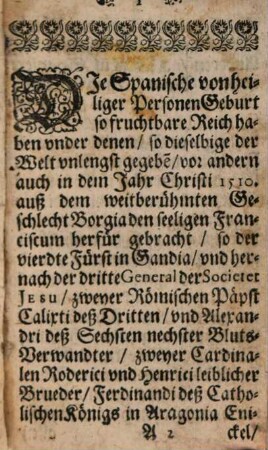 1
DIe Spanische von hei-
liger Personen Geburt
so fruchtbare Reich ha-
ben vnder denen / so dieselbige der
Welt vnlengst gegebẽ / vor andern
auch in dem Jahr Christi 1510.
auß dem weitberühmten Ge-
schlecht Borgia den seeligen Fran-
ciscum herfür gebracht / so der
vierdte Fürst in Gandia / vnd her-
nach der dritte General der Societet
JESU / zweyer Römischen Päpst
Calixti deß Dritten / vnd Alexan-
dri deß Sechsten nechster Bluts-
Verwandter / zweyer Cardina-
len Roderici vnd Henrici leiblicher
Brueder / Ferdinandi deß Catho-
lischen Königs in Aragonia Eni-
A 2 ckel /